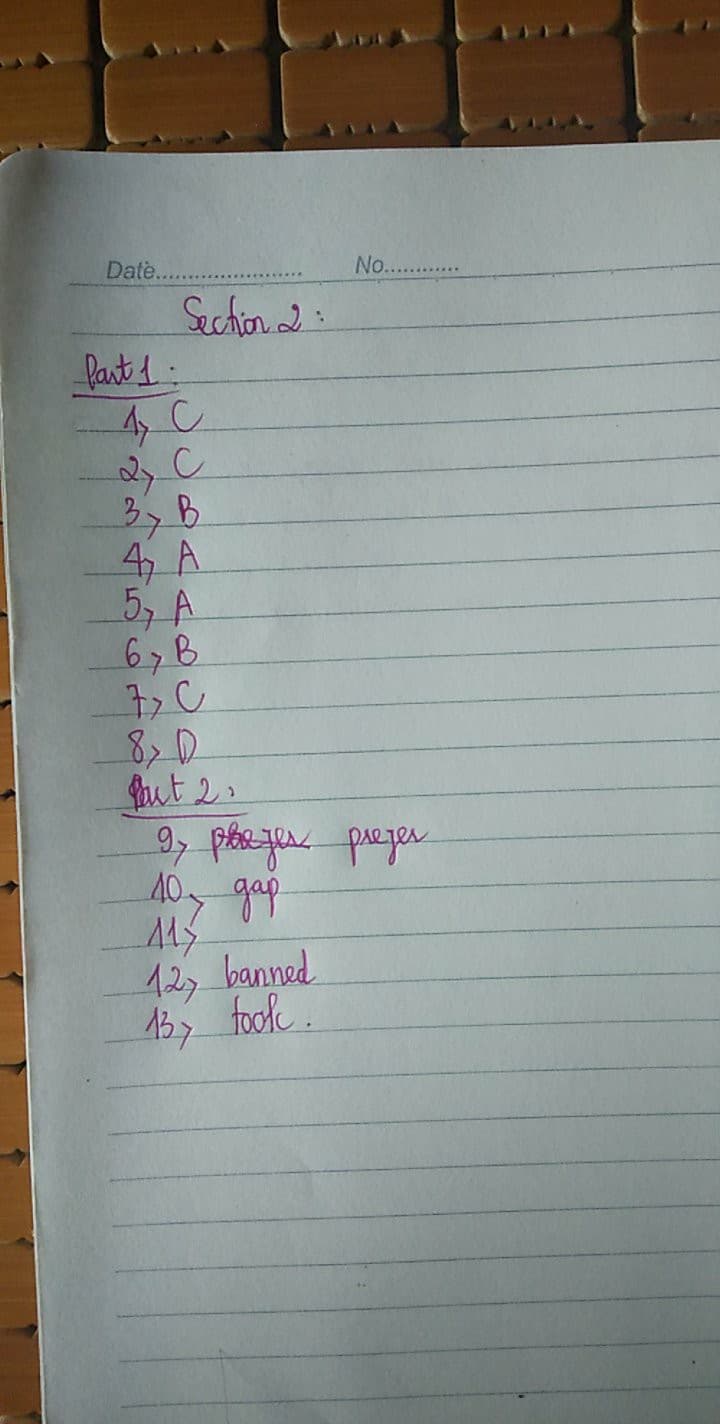 Date...................... No............
Section 2:
Part 1:
1, C
2, C
3, B
4, A
5, A
6, B
7, C
8, D
Part 2:
9, prefer
10, gap
11,
12, banned
13, took.